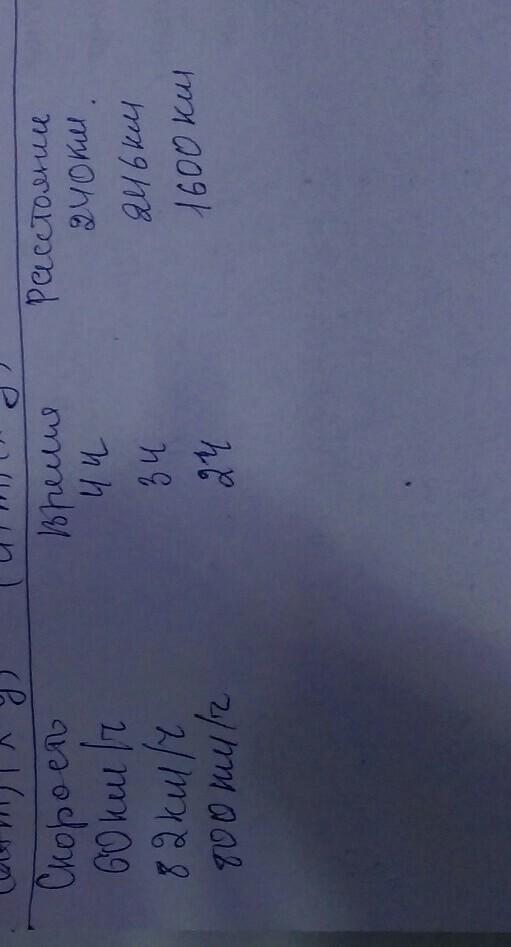 Скорость Время Расстояние
60 км/ч 4 ч 240 км.
82 км/ч 3 ч 246 км
800 км/ч 2 ч 1600 км